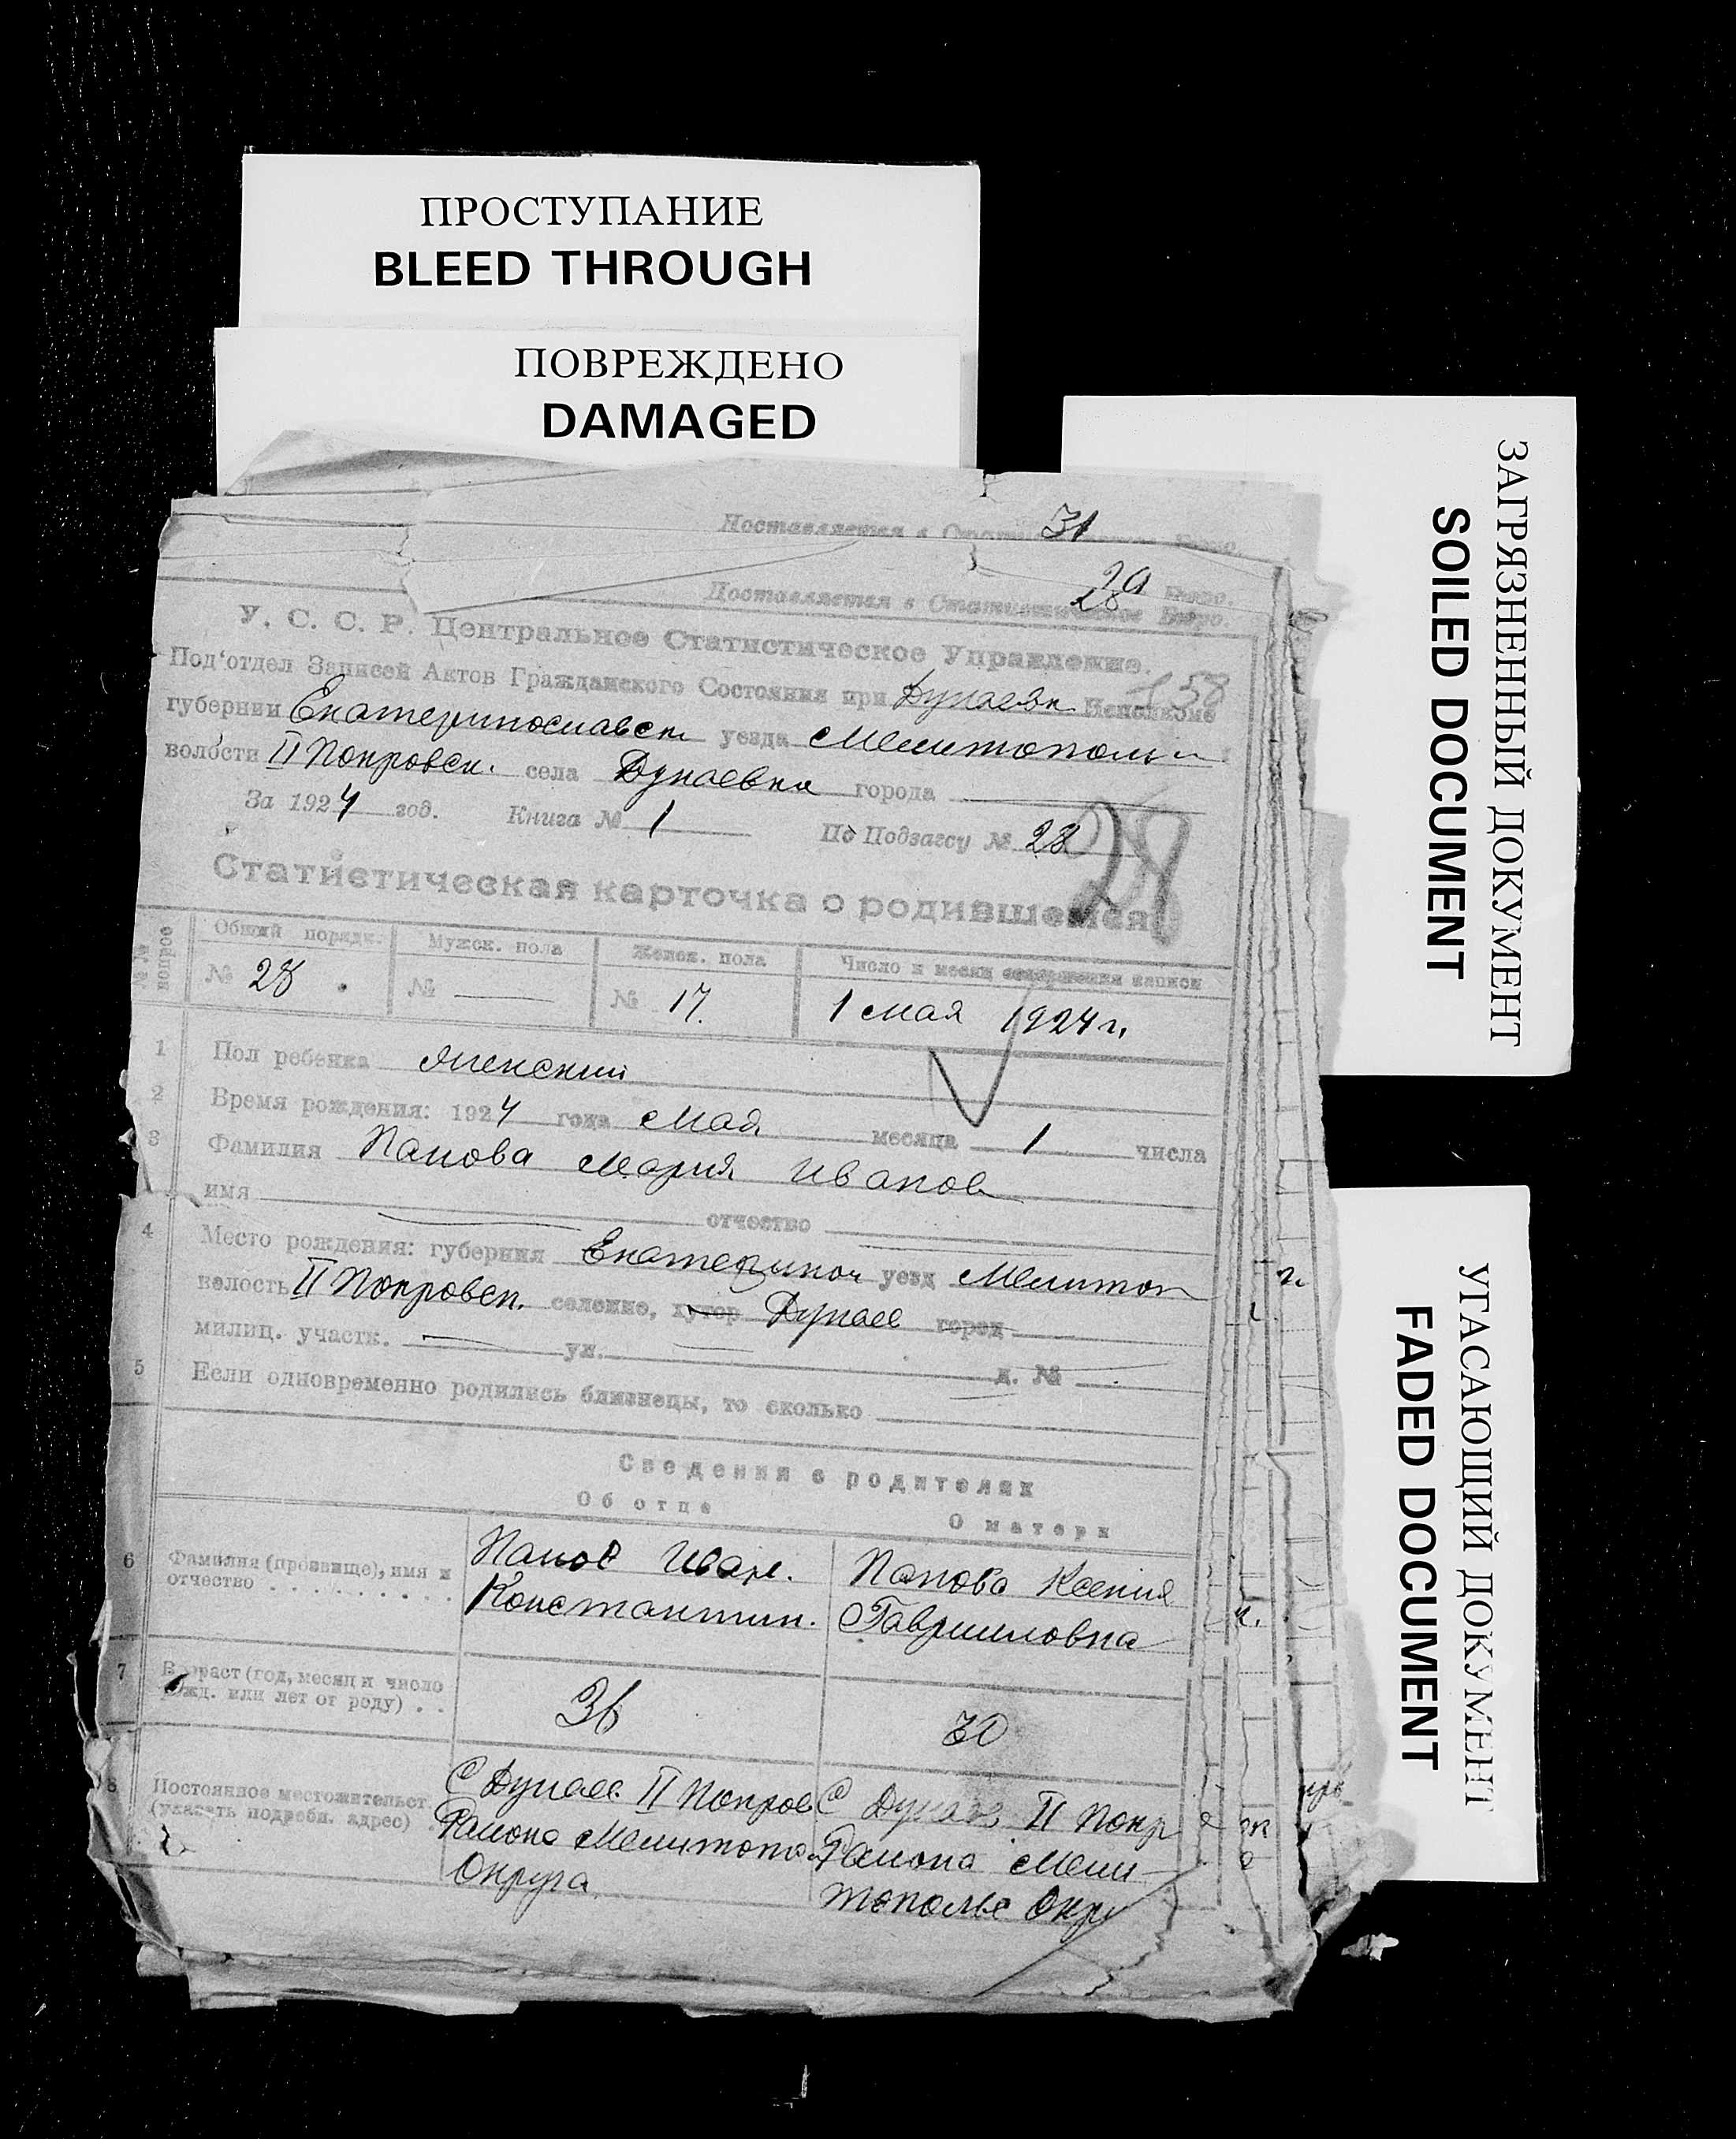 ПРОСТУПАНИЕ
BLEED THROUGH
ПОВРЕЖДЕНО
DAMAGED
ЗАГРЯЗНЕННЫЙ ДОКУМЕНТ
SOILED DOCUMENT
УГАСАЮЩИЙ ДОКУМЕНТ
FADED DOCUMENT
Доставляется в 31
29 Бюро.
Доставляется в Статистическое Бюро.
28
У. С. С. Р. Центральное Статистическое Управление.
Под'отдел Записей Актов Гражданского Состояния при Дунаевк Исполкоме
58
губернии Екатеринославск уезда Мелитополь
волости II Покровск. села Дунаевка города
За 1924 год. Книга № 1 По Подзагсу № 28
28
Статистическая карточка о родившемся
№№ вопрос Общий порядк. Мужск. пола Женск. пола Число и месяц совершения записи
№ 28. № — № 17. 1 мая 1924 г.
1 Пол ребенка женский
2 Время рождения: 1924 года мая месяца 1 числа
3 Фамилия Панова Мария Иванов
имя отчество
4 Место рождения: губерния Екатеринос уезд Мелитоп
волость II Покровск. селение, хутор Дунаев город
милиц. участк. — ул. — д. №
5 Если одновременно родились близнецы, то сколько
Сведения о родителях
Об отце О матери
6 Фамилия (прозвище), имя и отчество Панов Иван. Константин. Панова Ксения Гавриловна
7 Возраст (год, месяц и число рожд. или лет от роду) 36 30
8 Постоянное местожительст (указать подробн. адрес)
С Дунаев II Покров
Района Мелитопо
Округа.
С Дунаев II Покр
Района Мели-
тополье Окру